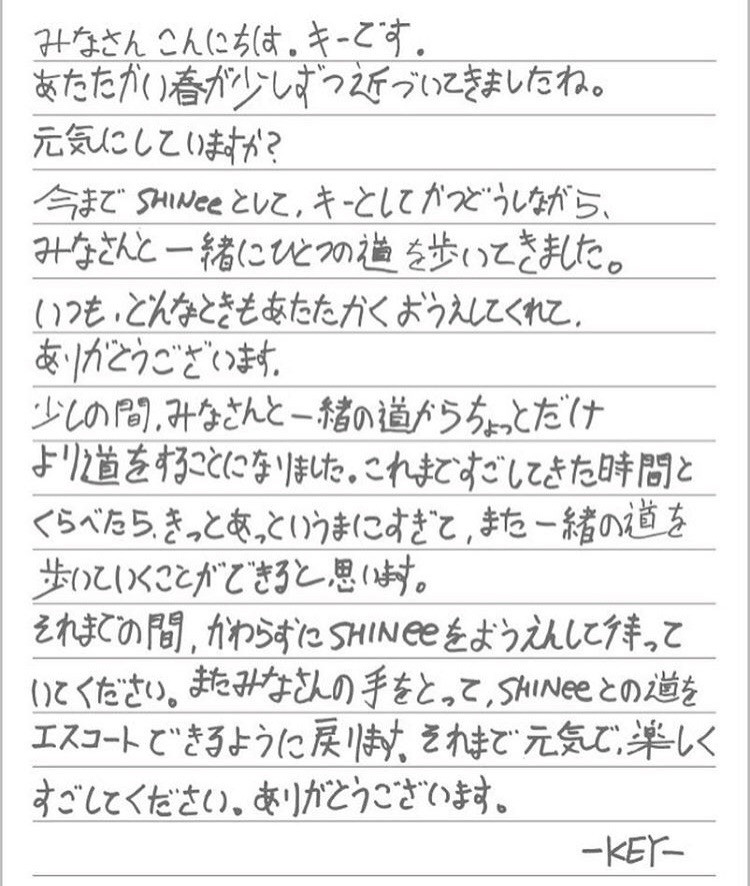 みなさん こんにちは。キーです。
あたたかい春が少しずつ近づいてきましたね。
元気にしていますか?
今まで SHINee として、キーとしてかつどうしながら、
みなさんと一緒にひとつの道を歩いてきました。
いつも、どんなときもあたたかくおうえしてくれて、
ありがとうございます。
少しの間、みなさんと一緒の道からちょっとだけ
より道をすることになりました。これまですごしてきた時間と
くらべたら、きっとあっというまにすぎて、また一緒の道を
歩いていくことができると思います。
それまでの間、かわらずにSHINeeをおうえんして待って
いてください。またみなさんの手をとって、SHINeeとの道を
エスコートできるように戻ります。それまで元気で、楽しく
すごしてください。ありがとうございます。
-KEY-